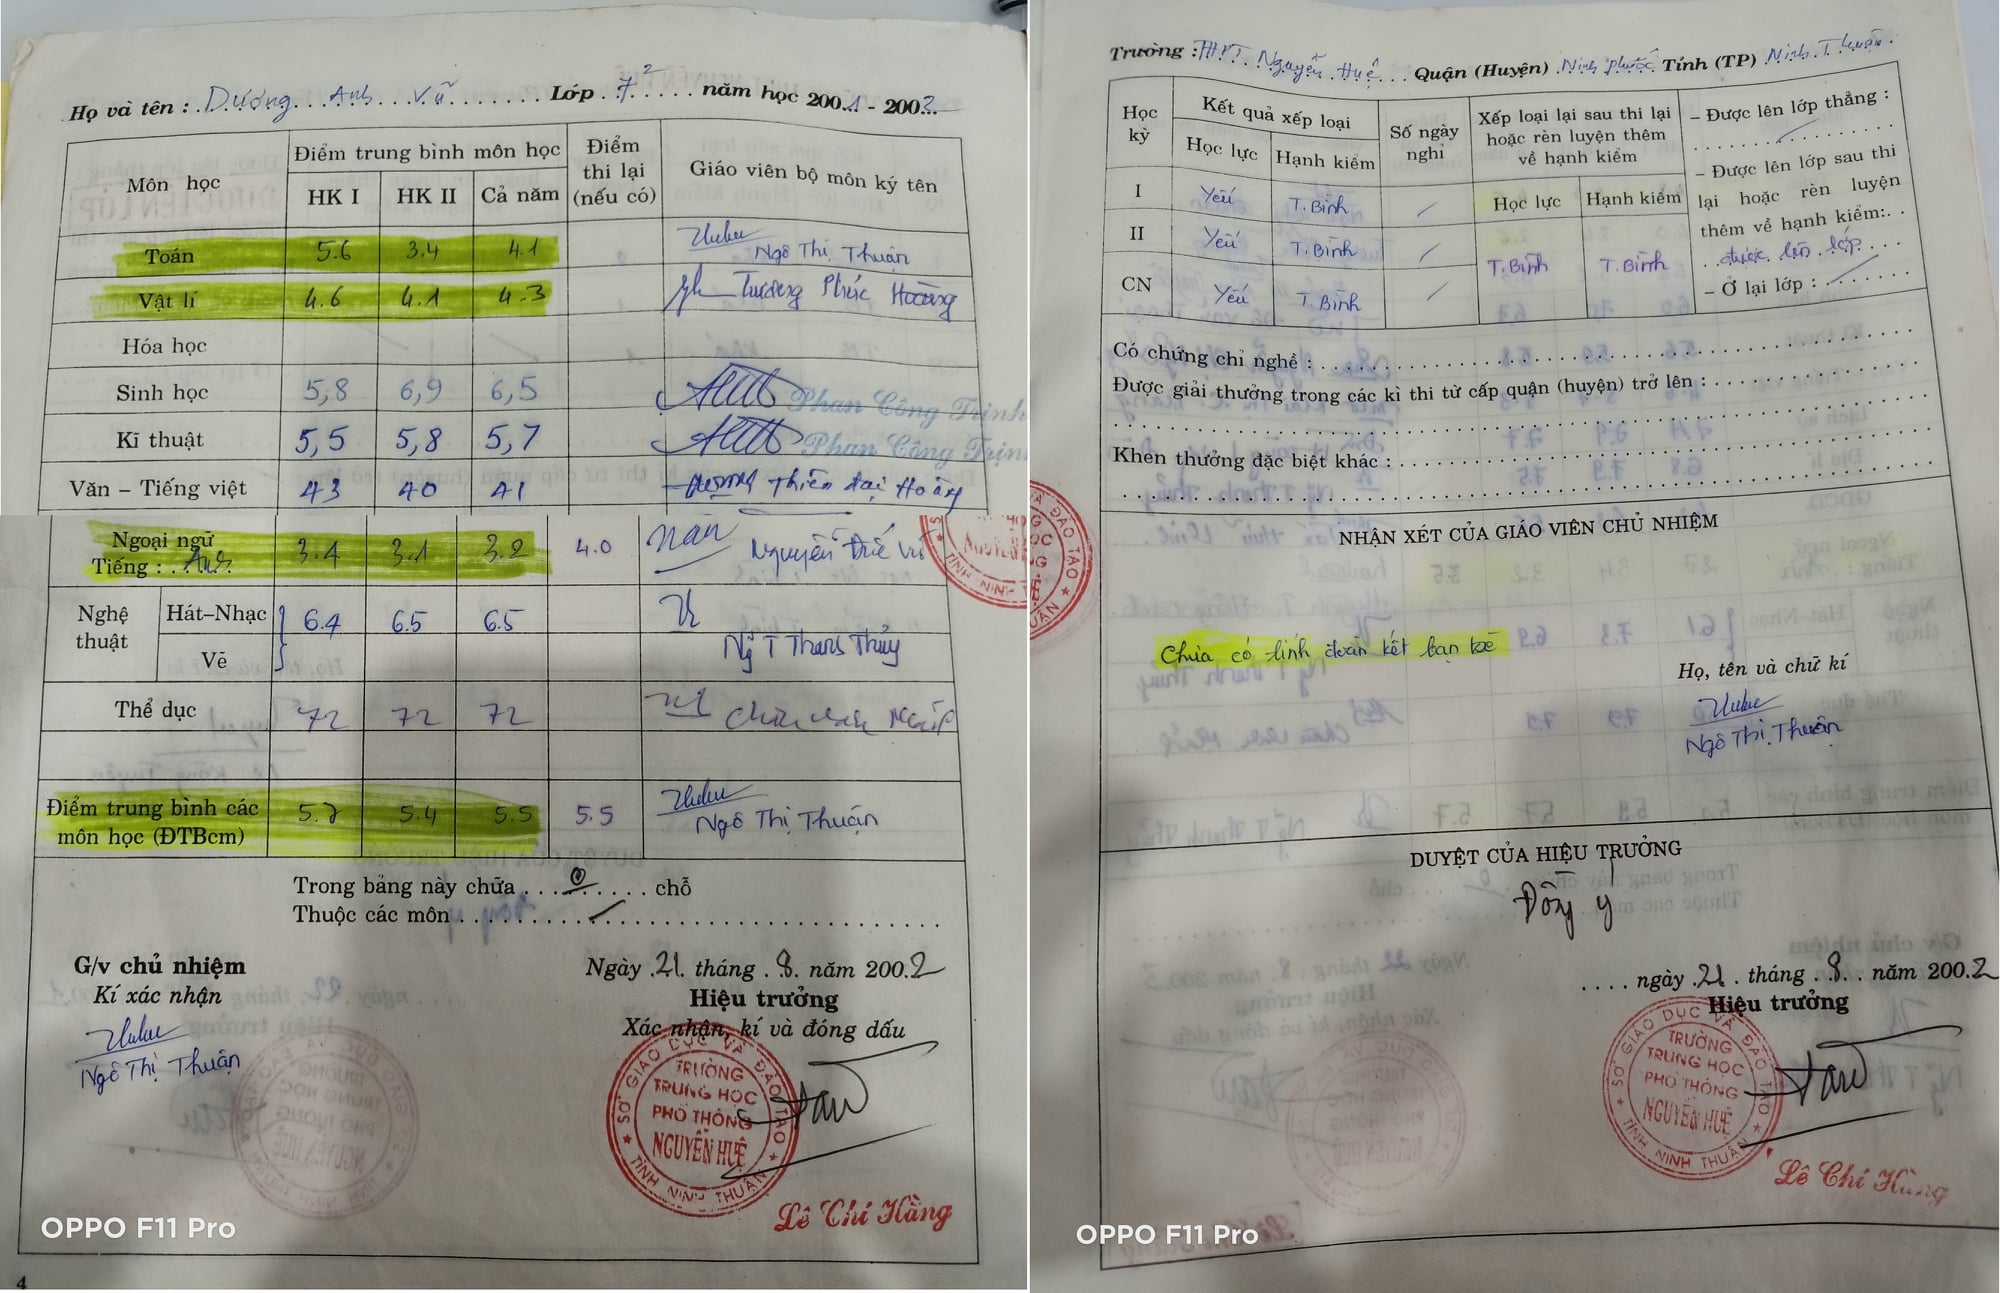 Họ và tên : Dương Anh Vũ Lớp 7² năm học 2001 - 2002
Môn học
Điểm trung bình môn học
HK I HK II Cả năm
Điểm thi lại (nếu có)
Giáo viên bộ môn ký tên
Toán 5.6 3.4 4.1 Ngô Thị Thuận
Vật lí 4.6 4.1 4.3 Trương Phúc Hoàng
Hóa học
Sinh học 5,8 6,9 6,5 Phan Công Trinh
Kĩ thuật 5,5 5,8 5,7 Phan Công Trịnh
Văn – Tiếng việt 43 40 41 Thiên Đại Hoàng
Ngoại ngữ
Tiếng : Anh 3.4 3.1 3.2 4.0 Nguyễn Thế Vũ
Nghệ thuật
Hát–Nhạc 6.4 6.5 6.5
Vẽ Ng T Thanh Thủy
Thể dục 72 72 72
Điểm trung bình các
môn học (ĐTBcm) 5.7 5.4 5.5 5.5 Ngô Thị Thuận
Trong bảng này chữa 0 chỗ
Thuộc các môn
G/v chủ nhiệm
Kí xác nhận
Ngô Thị Thuận
Ngày 21 tháng 8 năm 2002
Hiệu trưởng
Xác nhận, kí và đóng dấu
SỞ GIÁO DỤC VÀ ĐÀO TẠO
TRƯỜNG
TRUNG HỌC
PHỔ THÔNG
NGUYỄN HUỆ
TỈNH NINH THUẬN
Lê Chí Hằng
OPPO F11 Pro
4
Trường : THPT Nguyễn Huệ Quận (Huyện) Ninh Phước Tỉnh (TP) Ninh Thuận
Học kỳ
Kết quả xếp loại
Học lực Hạnh kiểm
Số ngày nghỉ
Xếp loại lại sau thi lại
hoặc rèn luyện thêm
về hạnh kiểm
Học lực Hạnh kiểm
I Yếu T.Bình
II Yếu T.Bình
CN Yếu T.Bình
T.Bình T.Bình
– Được lên lớp thẳng :
– Được lên lớp sau thi
lại hoặc rèn luyện
thêm về hạnh kiểm:
được lên lớp
– Ở lại lớp :
Có chứng chỉ nghề :
Được giải thưởng trong các kì thi từ cấp quận (huyện) trở lên :
Khen thưởng đặc biệt khác :
NHẬN XÉT CỦA GIÁO VIÊN CHỦ NHIỆM
Chưa có tính đoàn kết bạn bè
Họ, tên và chữ kí
Ngô Thị Thuận
DUYỆT CỦA HIỆU TRƯỞNG
Đồng ý
ngày 21 tháng 8 năm 2002
Hiệu trưởng
SỞ GIÁO DỤC VÀ ĐÀO TẠO
TRƯỜNG
TRUNG HỌC
PHỔ THÔNG
NGUYỄN HUỆ
TỈNH NINH THUẬN
Lê Chí Hằng
OPPO F11 Pro